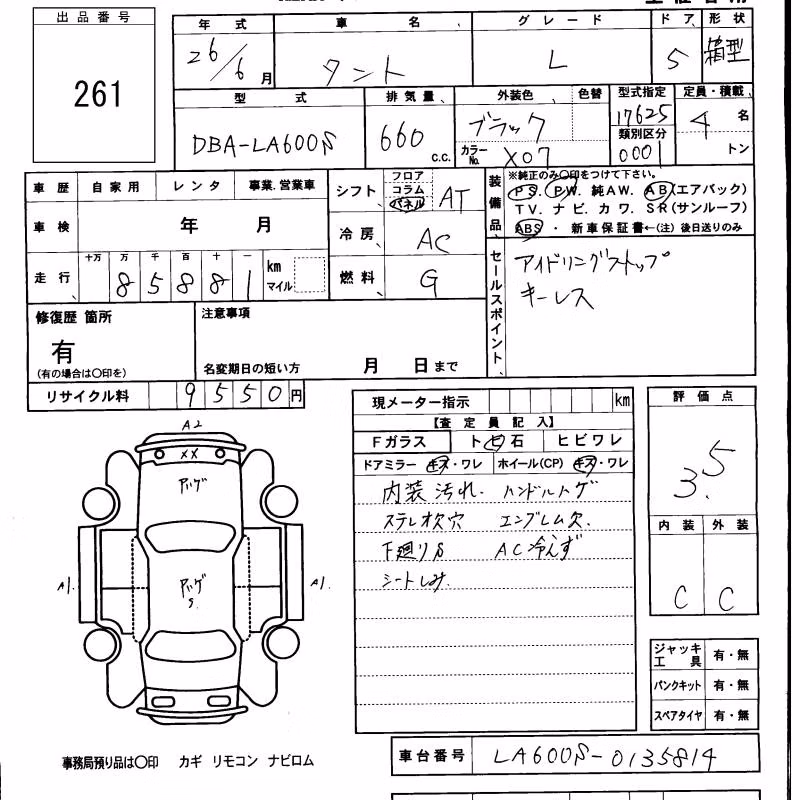 出品番号
261
年式 車名、 グレード ドア、 形状
26/6月 タント L 5 箱型
型式 排気量、 外装色 色替 型式指定 定員・積載、
DBA-LA600S 660 c.c. ブラック 17625 4 名
カラーNo. X07 類別区分 0001 トン
車歴 自家用 レンタ 事業.営業車
車検 年 月
走行、 十万 万 千 百 十 一 km マイル
8 5 8 8 1
シフト、 フロア コラム パネル AT
冷房 AC
燃料、 G
装備品、 ※純正のみ〇印をつけて下さい。
PS. PW. 純AW. AB(エアバック)
TV. ナビ. カワ. SR(サンルーフ)
ABS ・ 新車保証書←(注) 後日送りのみ
セールスポイント、 アイドリングストップ
キーレス
修復歴 箇所
有
(有の場合は〇印を)
注意事項
名変期日の短い方 月 日まで
リサイクル料 9550円
現メーター指示 km
【査定員記入】
Fガラス トビ石 ヒビワレ
ドアミラー キズ・ワレ ホイール(CP) キズ・ワレ
内装汚れ. ハンドルトゲ
ステレオ欠穴 エンブレム欠.
下廻りS ACヒエズ
シートしみ.
評価点
3.5
内装 外装
C C
A2
XX
A1. A1.
S.
ジャッキ工具 有・無
パンクキット 有・無
スペアタイヤ 有・無
事務局預り品は〇印 カギ リモコン ナビロム
車台番号 LA600S-0135814